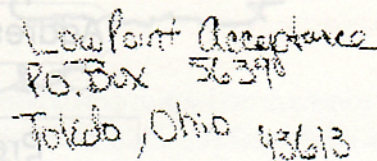 LowPoint Acceptance
P.O. Box 56390
Toledo, Ohio 43613